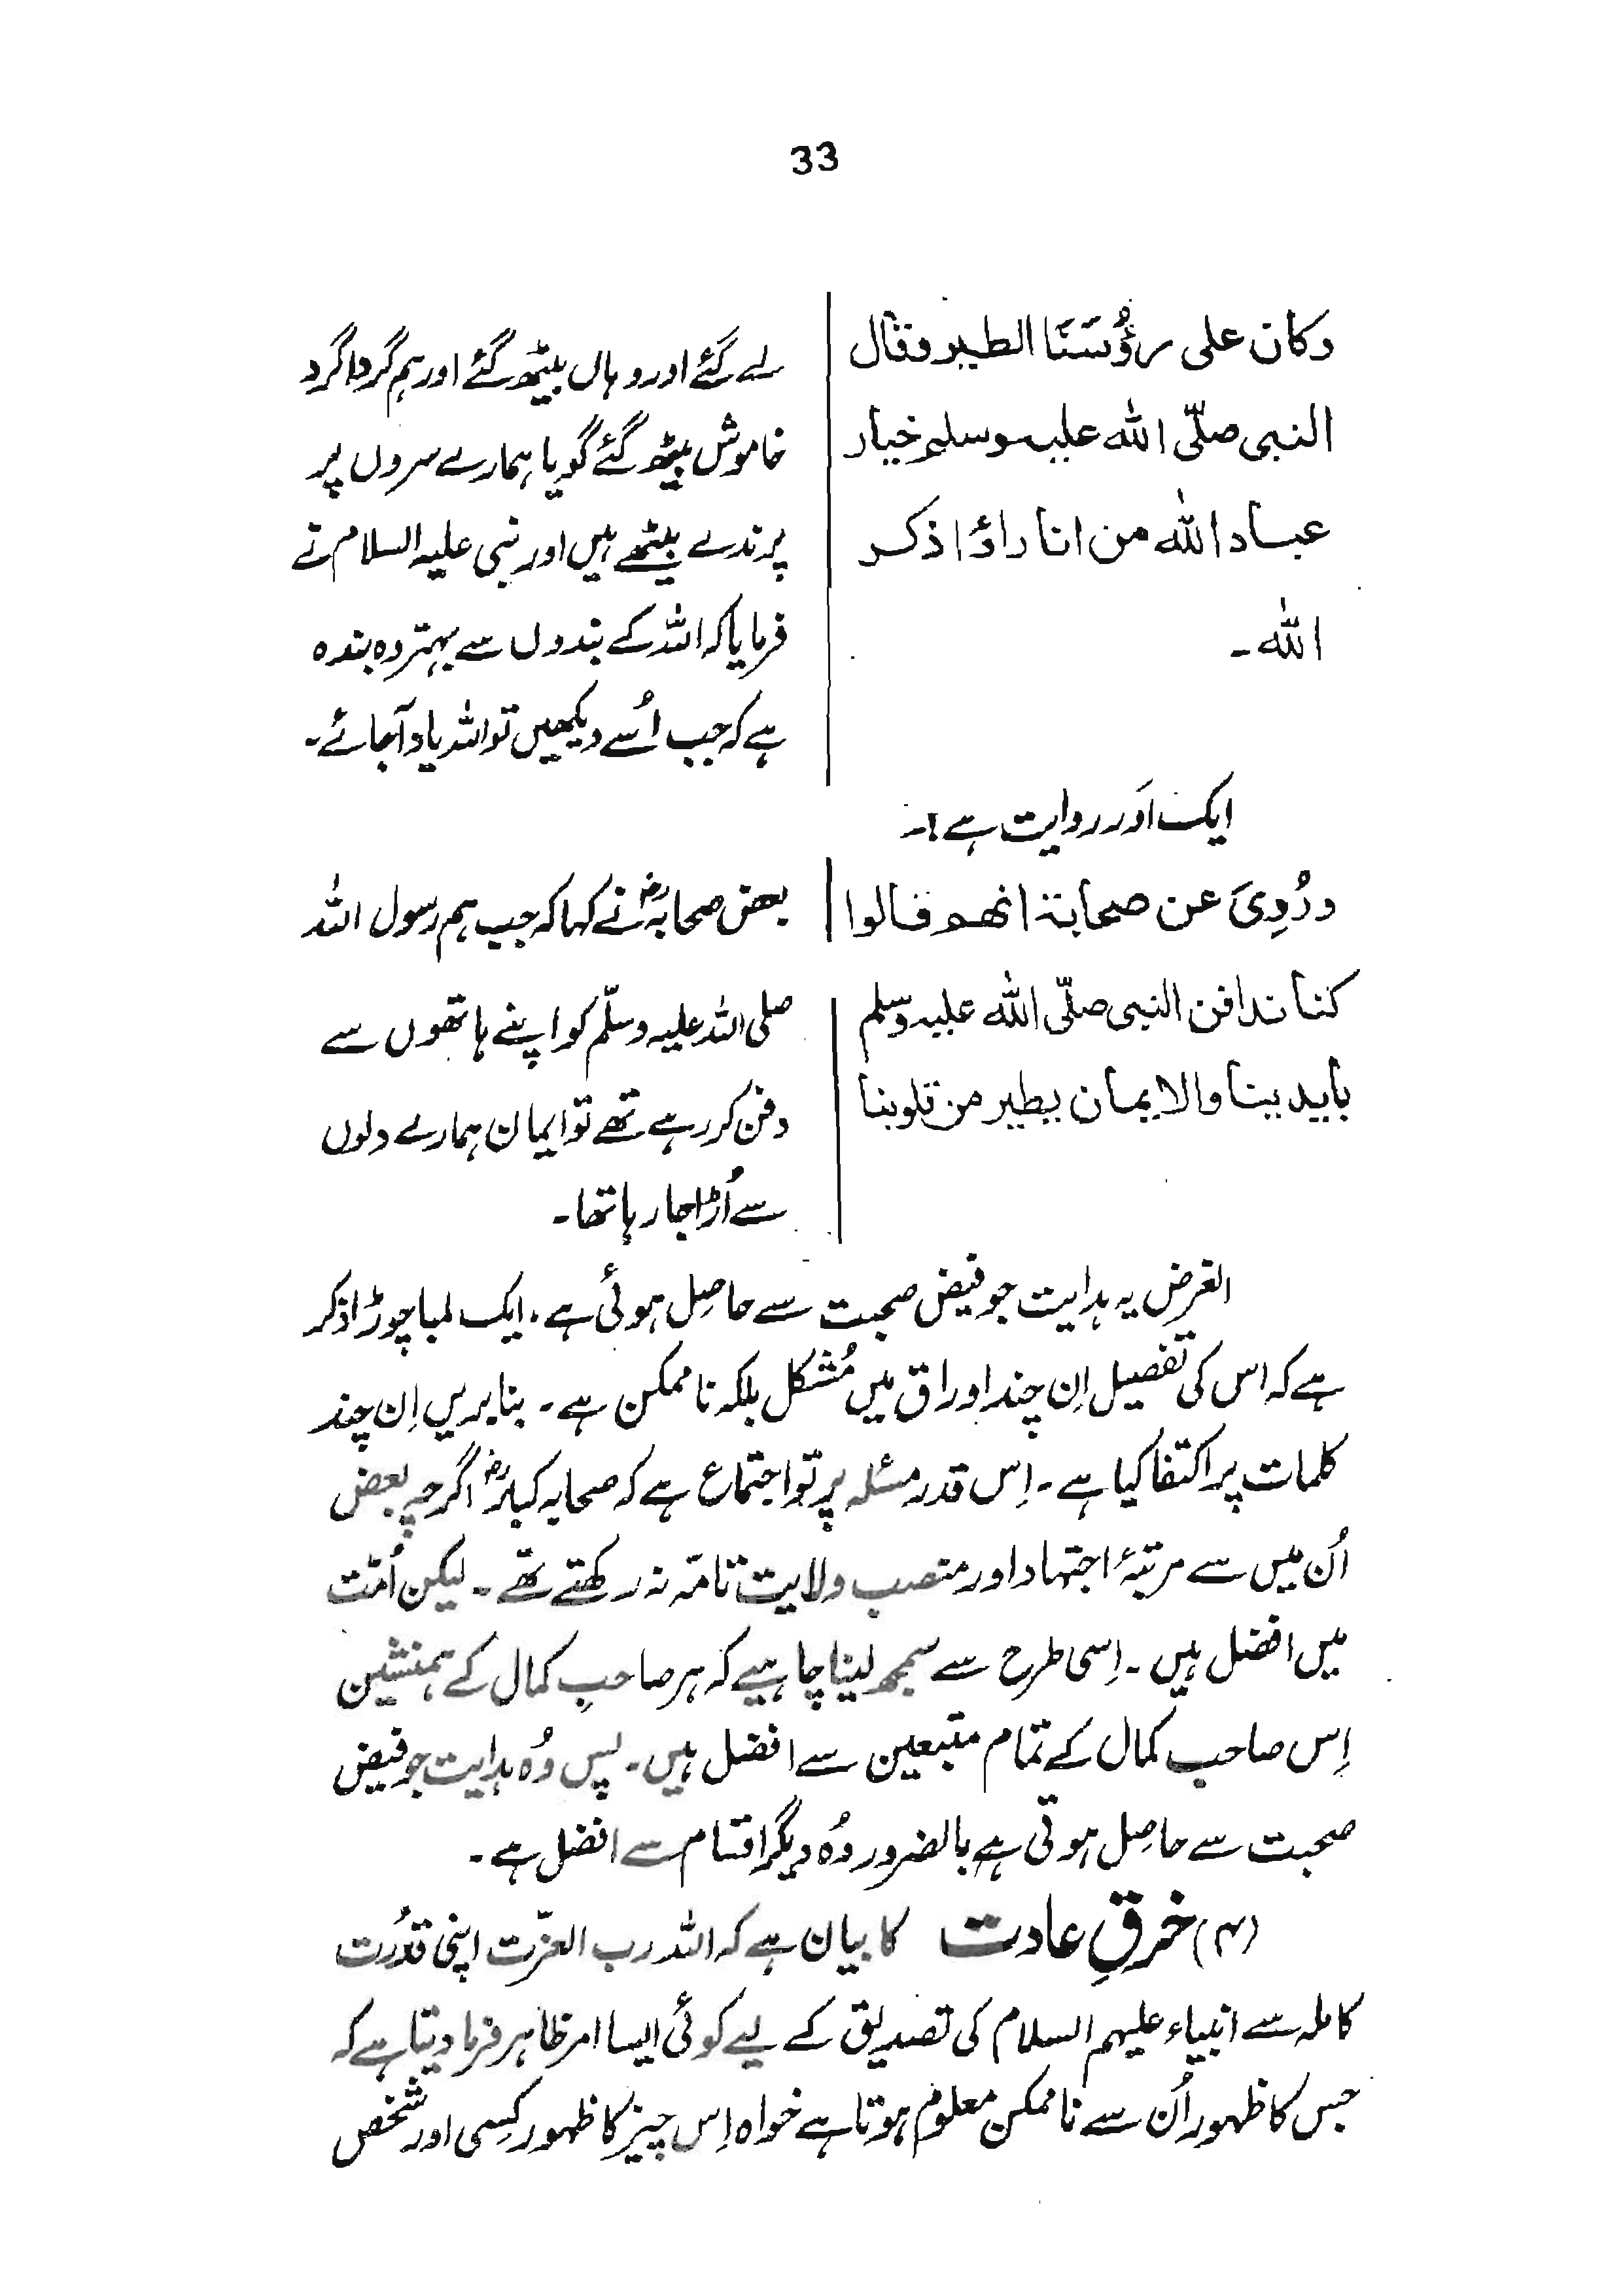 33
وكان على رؤُسَنَا الطير فقال
النبى صلّى الله عليه وسلم خيار
عباد الله من اذا راؤا ذكر
الله ۔
لے گئے اور وہاں بیٹھ گئے اور ہم گرداگرد
خاموش بیٹھ گئے گویا ہمارے سروں پر
پرندے بیٹھے ہیں اور نبی علیہ السلام نے
فرمایا کہ اللہ کے بندوں سے بہتر وہ بندہ
ہے کہ جب اُسے دیکھیں تو اللہ یاد آجائے۔
ایک اَور روایت ہے:۔
ورُوِىَ عن صحابة انهم قالوا
كنا ندافن النبى صلّى الله عليه وسلم
بايدينا والايمان يطير من قلوبنا
بعض صحابہؓ نے کہا کہ جب ہم رسول اللہ
صلی اللہ علیہ وسلّم کو اپنے ہاتھوں سے
دفن کر رہے تھے تو ایمان ہمارے دلوں
سے اُڑا جا رہا تھا۔
الغرض یہ ہدایت جو فیض صحبت سے حاصِل ہوئی ہے، ایک لمبا چوڑا ذکر
ہے کہ اس کی تفصیل اِن چند اوراق میں مُشکل بلکہ ناممکن ہے۔ بنابریں اِن چند
کلمات پر اکتفا کیا ہے۔ اِس قدر مسئلہ پر تو اجتماع ہے کہ صحابہ کبارؓ اگرچہ بعض
اُن میں سے مرتبۂ اجتہاد اور منصب ولایت تامّہ نہ رکھتے تھے۔ لیکن اُمّت
میں افضل ہیں۔ اِسی طرح سے سمجھ لینا چاہیے کہ ہر صاحبِ کمال کے ہمنشین
اِس صاحب کمال کے تمام متبعین سے افضل ہیں۔ پس وُہ ہدایت جو فیض
صحبت سے حاصِل ہوتی ہے بالضرور وُہ دیگر اقسام سے افضل ہے۔
(۴) خرقِ عادت کا بیان ہے کہ اللہ رب العزّت اپنی قدُرت
کاملہ سے انبیاء علیہم السلام کی تصدیق کے لیے کوئی ایسا امر ظاہر فرما دیتا ہے کہ
جس کا ظہور اُن سے ناممکن معلوم ہوتا ہے خواہ اِس چیز کا ظہور کسِی اور شخص